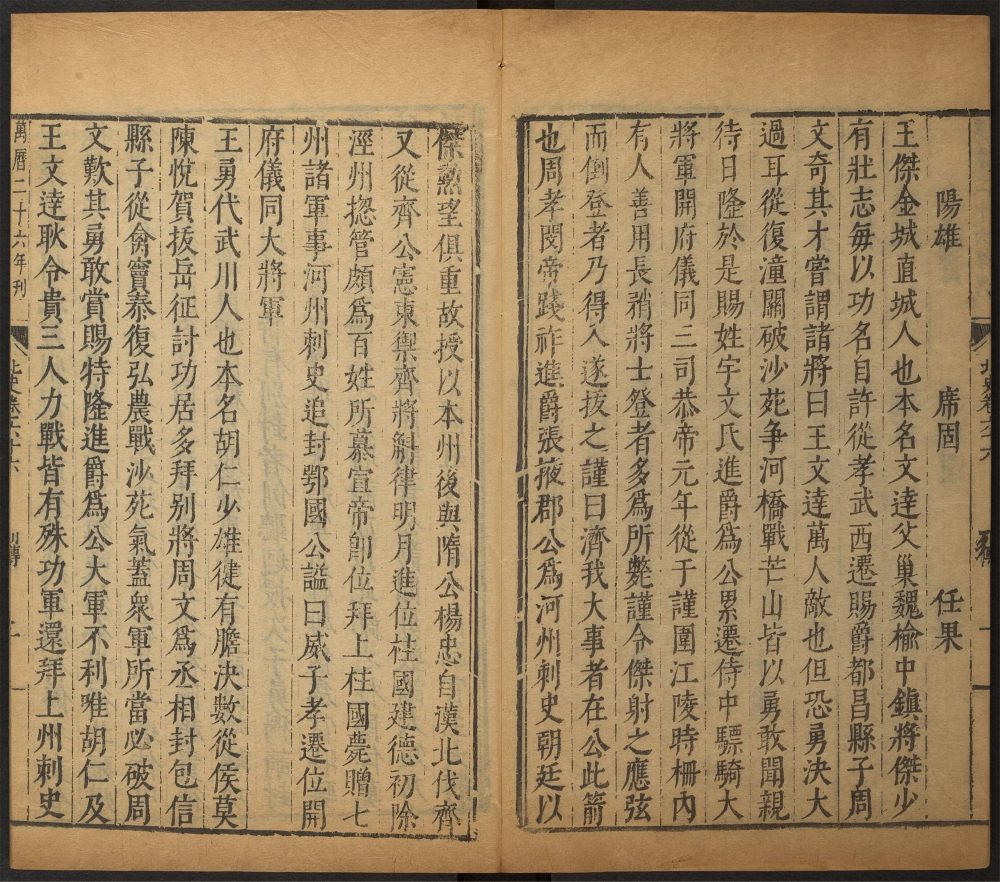 陽雄 席固 任果
王傑金城直城人也本名文達父巢魏榆中鎮將傑少
有壯志每以功名自許從孝武西遷賜爵都昌縣子周
文奇其才嘗謂諸將曰王文達萬人敵也但恐勇決大
過耳從復潼關破沙苑爭河橋戰芒山皆以勇敢聞親
待日隆於是賜姓宇文氏進爵爲公累遷侍中驃騎大
將軍開府儀同三司恭帝元年從于謹圍江陵時柵內
有人善用長矟將士登者多爲所斃謹令傑射之應弦
而倒登者乃得入遂拔之謹曰濟我大事者在公此箭
也周孝閔帝踐祚進爵張掖郡公爲河州刺史朝廷以
傑勲望俱重故授以本州後與隋公楊忠自漠北伐齊
又從齊公憲東禦齊將斛律明月進位柱國建德初除
涇州揔管頗爲百姓所慕宣帝卽位拜上柱國薨贈七
州諸軍事河州刺史追封鄂國公謚曰威子孝遷位開
府儀同大將軍
王勇代武川人也本名胡仁少雄徤有膽決數從侯莫
陳悅賀拔岳征討功居多拜別將周文爲丞相封包信
縣子從禽竇泰復弘農戰沙苑氣蓋衆軍所當必破周
文歎其勇敢賞賜特隆進爵爲公大軍不利唯胡仁及
王文達耿令貴三人力戰皆有殊功軍還拜上州刺史
萬曆二十六年刊
北史卷六十六